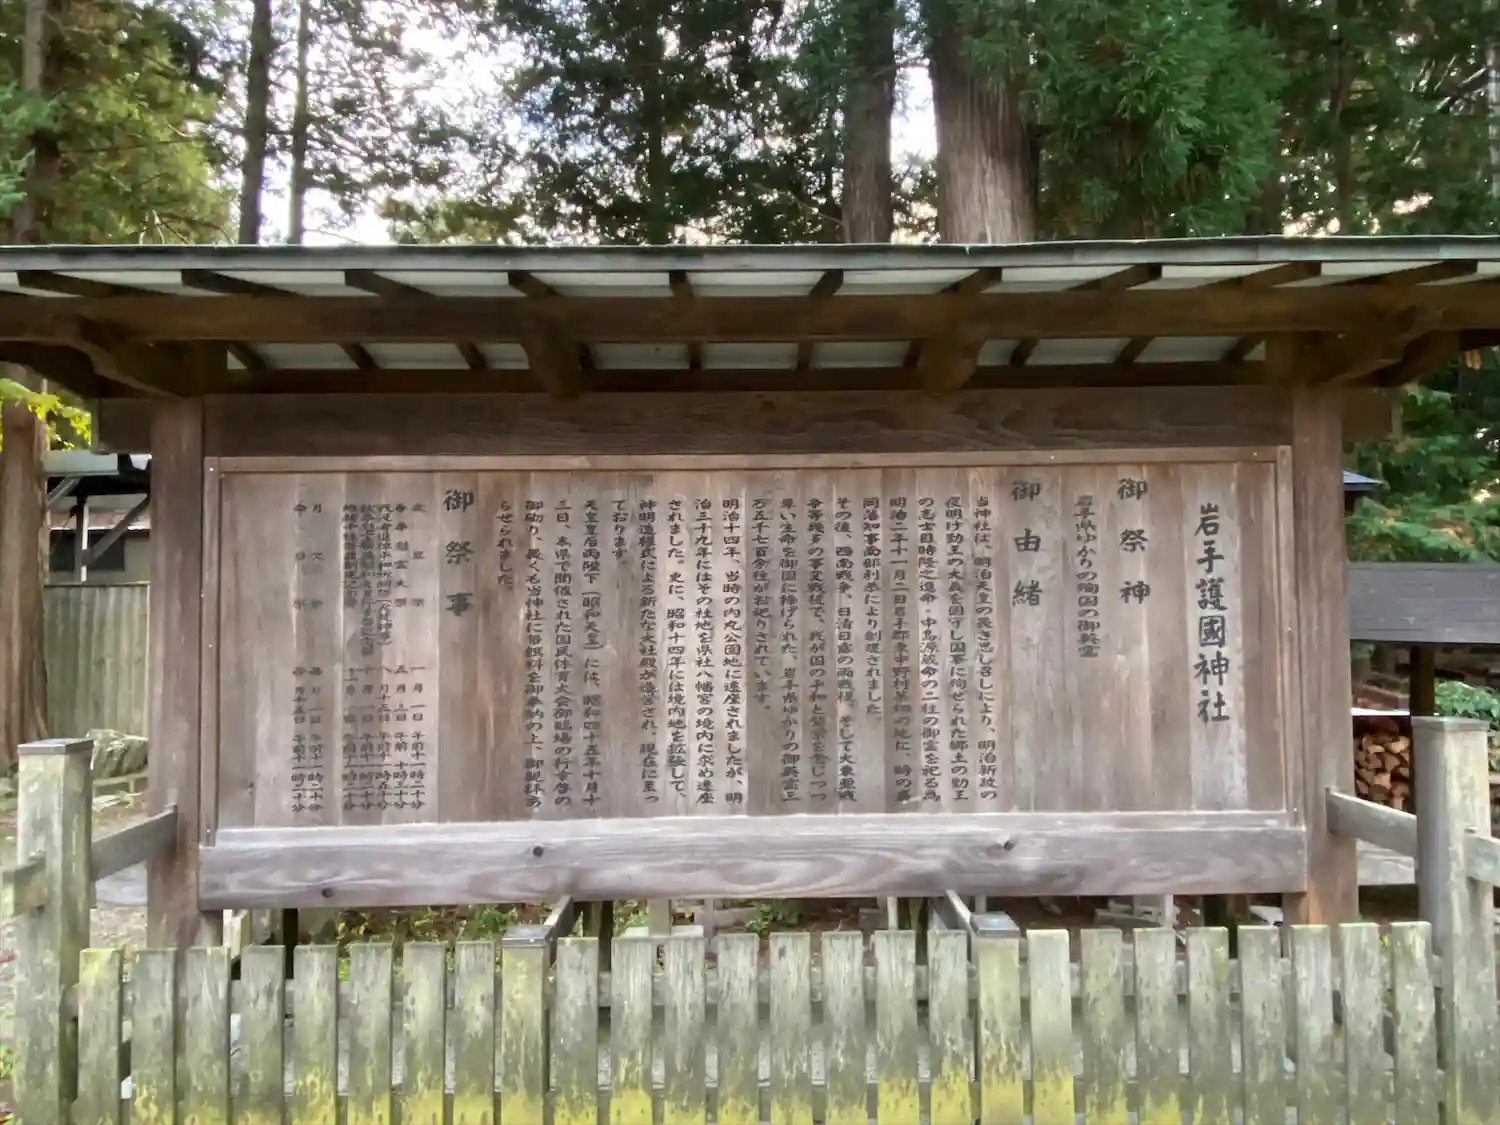 岩手護國神社
御祭神
岩手県ゆかりの殉国の御英霊
御由緒
当神社は、明治天皇の畏き思し召しにより、明治新政の
夜明け勤王の大義を固守し国事に殉ぜられた郷土の勤王
の志士目時隆之進命・中島源蔵命の二柱の御霊を祀る為
明治二年十一月二日岩手郡東中野村茶畑の地に、時の盛
岡藩知事南部利恭により創建されました。
その後、西南戦争、日清日露の両戦役、そして大東亜戦
争等幾多の事変戦役で、我が国の平和と繁栄を念じつつ
尊い生命を御国に捧げられた、岩手県ゆかりの御英霊三
万五千七百余柱がお祀りされています。
明治十四年、当時の内丸公園地に遷座されましたが、明
治三十九年にはその社地を県社八幡宮の境内に求め遷座
されました。更に、昭和十四年には境内地を拡張して、
神明造様式による新たな大社殿が造営され、現在に至っ
ております。
天皇皇后両陛下（昭和天皇）には、昭和四十五年十月十
三日、本県で開催された国民体育大会御臨場の行幸啓の
御砌り、畏くも当神社に幣饌料を御奉納の上、御親拝あ
らせられました。
御祭事
歳旦祭 一月一日 午前十一時二十分
春季慰霊大祭 五月 午前十時三十分
八月十五日 午前十一時五十分
月次祭